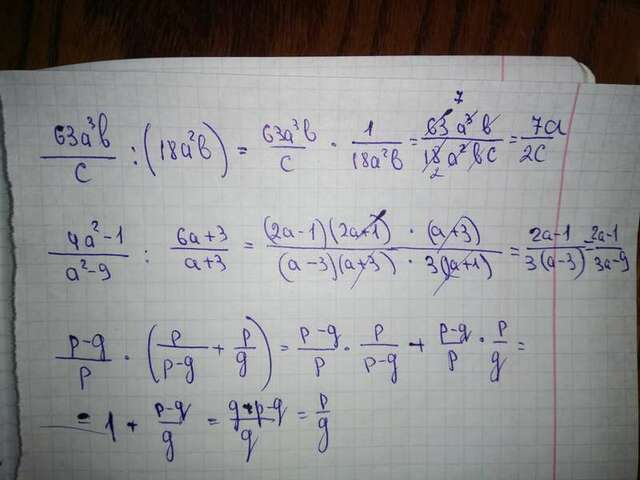 63a³b/c : (18a²b) = 63a³b/c · 1/18a²b = 7 63a³b/18 2 a²bc = 7a/2c
4a²-1/a²-9 : 6a+3/a+3 = (2a-1)(2a+1) · (a+3)/(a-3)(a+3) · 3(2a+1) = 2a-1/3(a-3) = 2a-1/3a-9
p-g/p · (p/p-g + p/g) = p-g/p · p/p-g + p-g/p · p/g =
= 1 + p-g/g = g+p-g/g = p/g